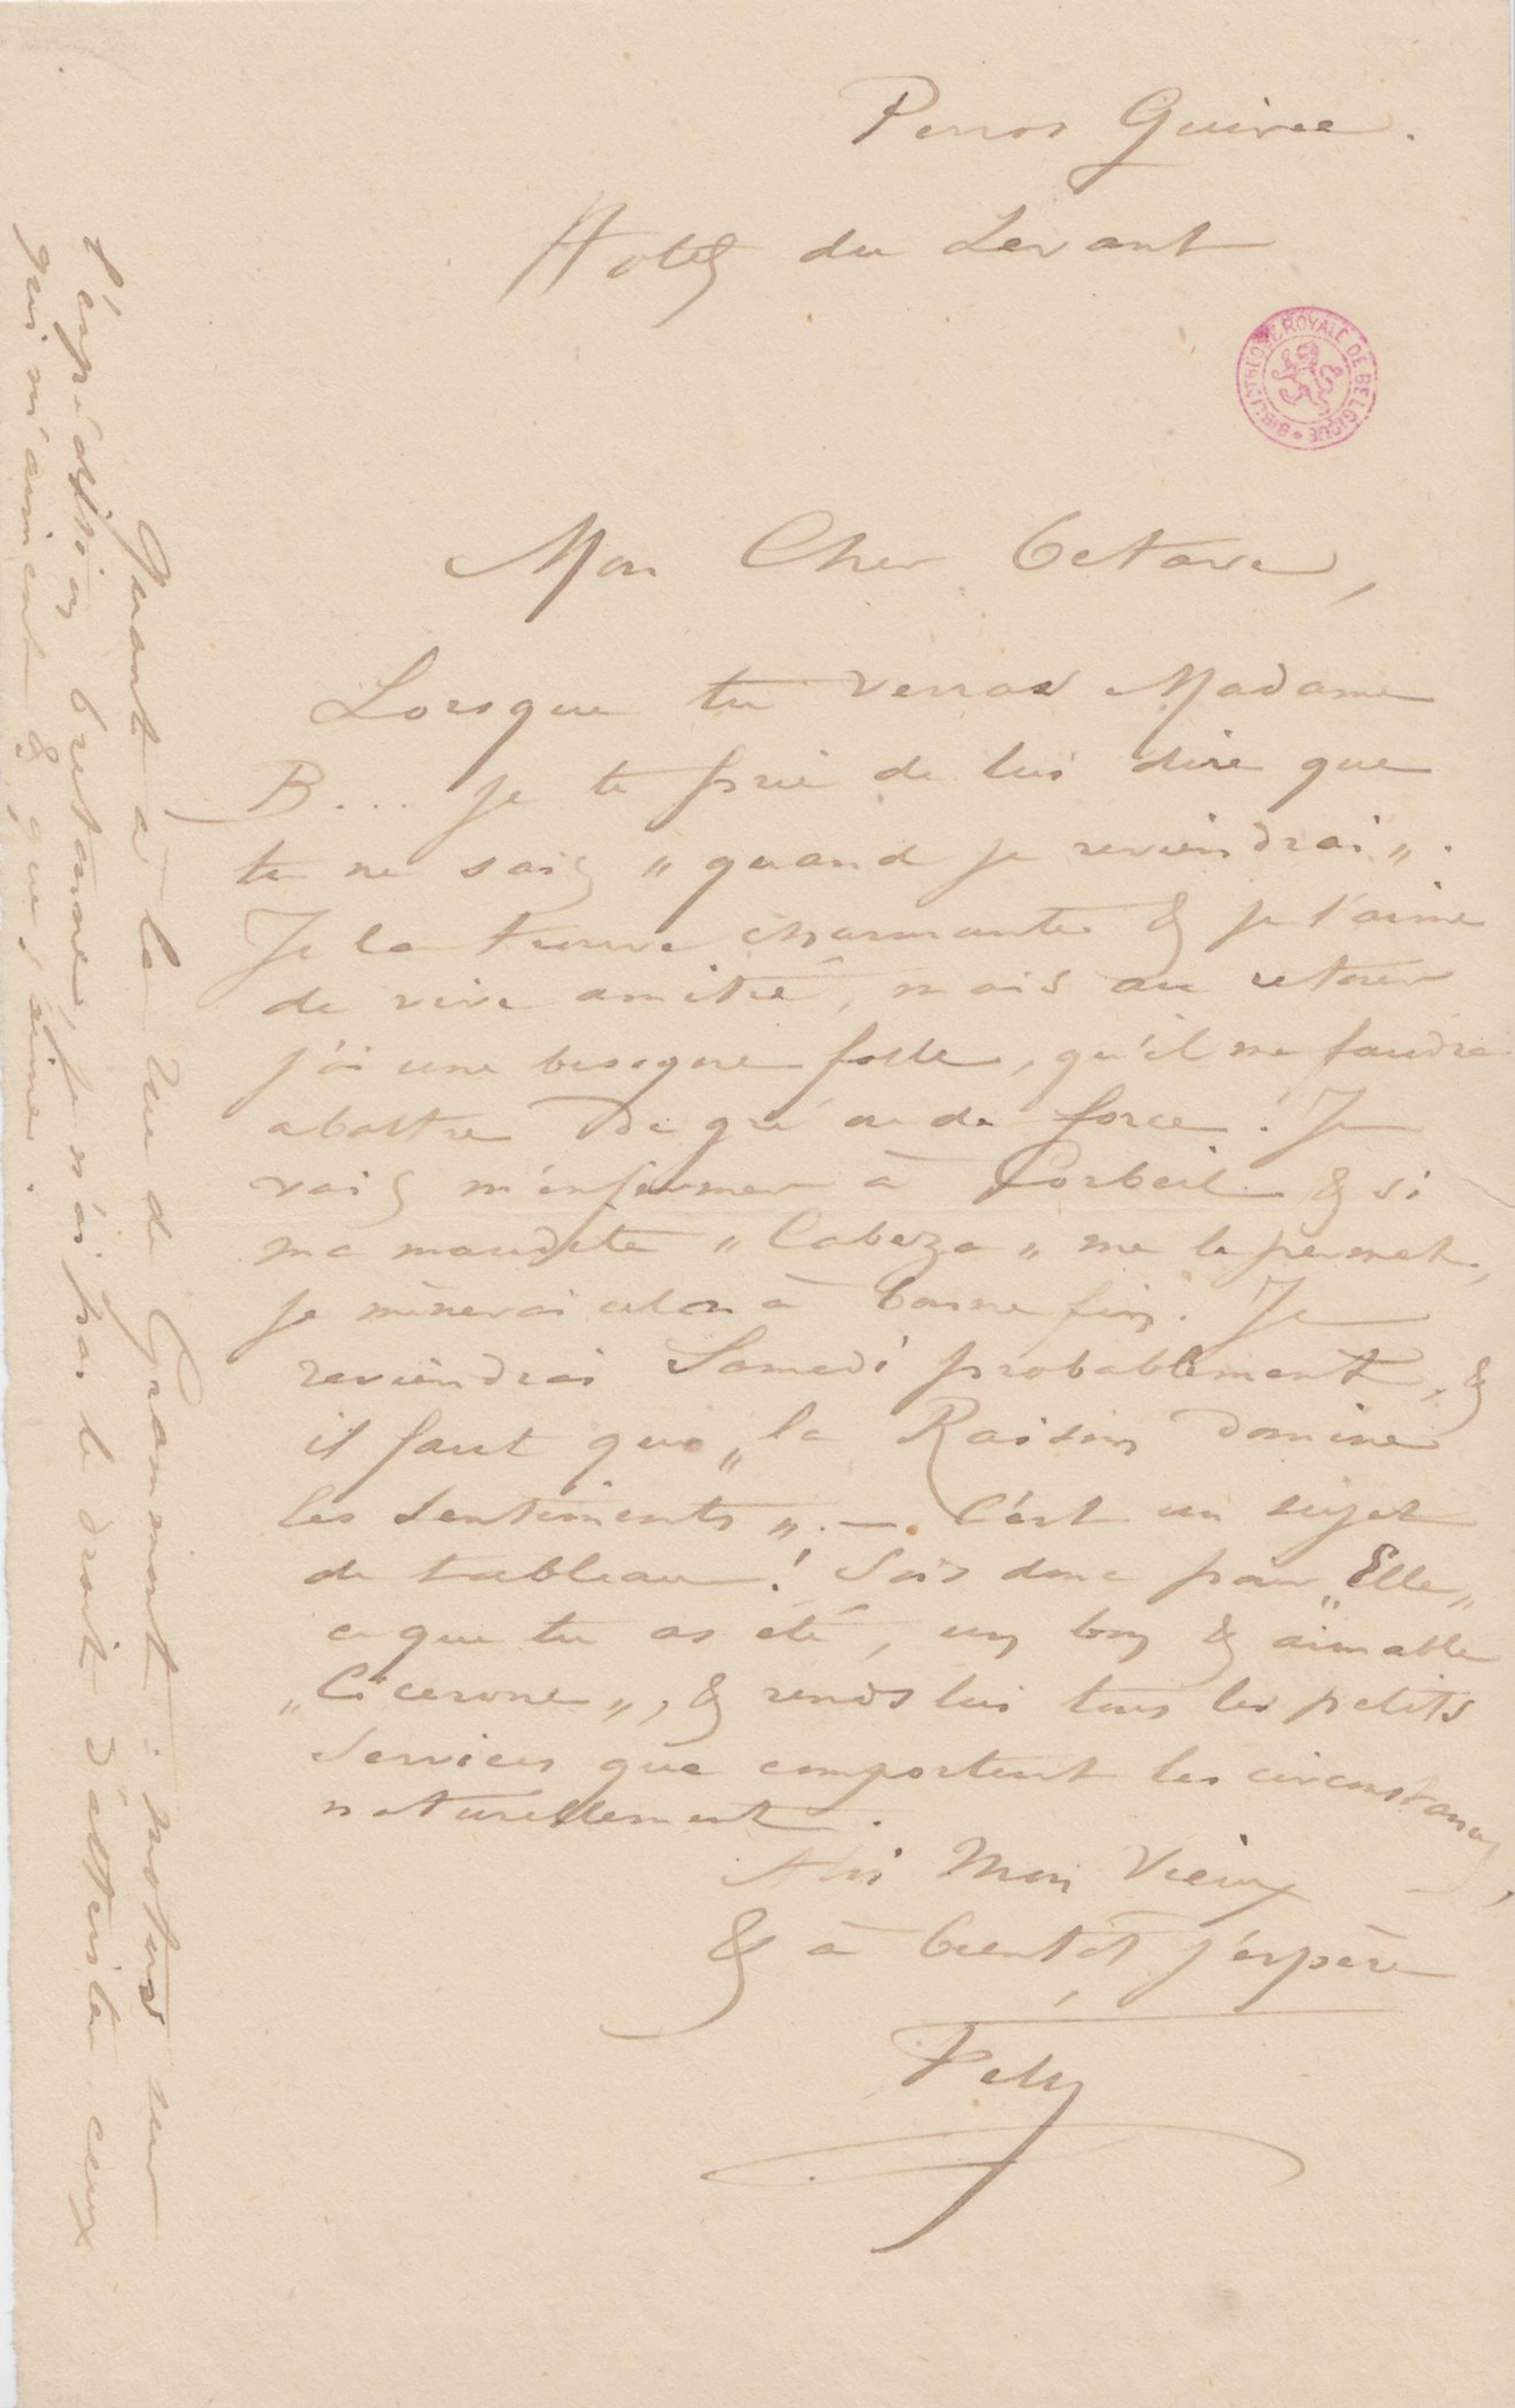 Perros Guirec.
Hotel du Levant
BIBLIOTHEQUE ROYALE DE BELGIQUE *
Mon Cher Octave,
Lorsque tu verras Madame
B... je te prie de lui dire que
tu ne sais „ quand je reviendrai „.
Je la trouve charmante & je l'aime
de vive amitié, mais au retour
j'ai une besogne folle, qu'il me faudra
abattre de gré ou de force ! Je
vais m'enfermer à Corbeil & si
ma maudite „ Cabeza „ me le permet,
je mènerai cela à bonne fin. Je
reviendrai Samedi probablement, &
il faut que „ la Raison domine
les sentiments „. — C'est un sujet
de tableau ! Sois donc pour „ Elle „
ce que tu as été, un bon & aimable
„ Cicerone „, & rends lui tous les petits
services que comportent les circonstances,
naturellement.
Mon Vieux
& à bientôt j'espère
Fély
Quant à la rue de Grammont : motus sur
l'expédition bretonne, je n'ai pas le droit d'attrister ceux
qui m'aiment & que j'aime.